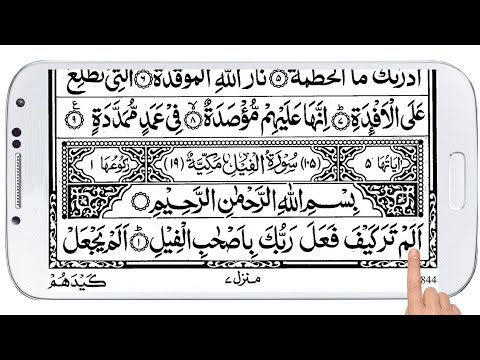 ادرىك ما الحطمة ۝۵ نار الله الموقدة ۝۶ التى تطلع
عَلَى الْاَفْـِٕدَةِ ۝۷ اِنَّهَا عَلَيْهِمْ مُّؤْصَدَةٌ ۝۸ فِيْ عَمَدٍ مُّمَدَّدَةٍ ۝۹
اٰيَاتُهَا ۵ (۱۰۵) سُوْرَةُ الْفِيْلِ مَكِّيَّةٌ (۱۹) رُكُوْعُهَا ۱
بِسْمِ اللهِ الرَّحْمٰنِ الرَّحِيْمِ ۝
اَلَمْ تَرَ كَيْفَ فَعَلَ رَبُّكَ بِاَصْحٰبِ الْفِيْلِ ۝۱ اَلَمْ يَجْعَلْ
844 منزل ۷ كَيْدَهُمْ